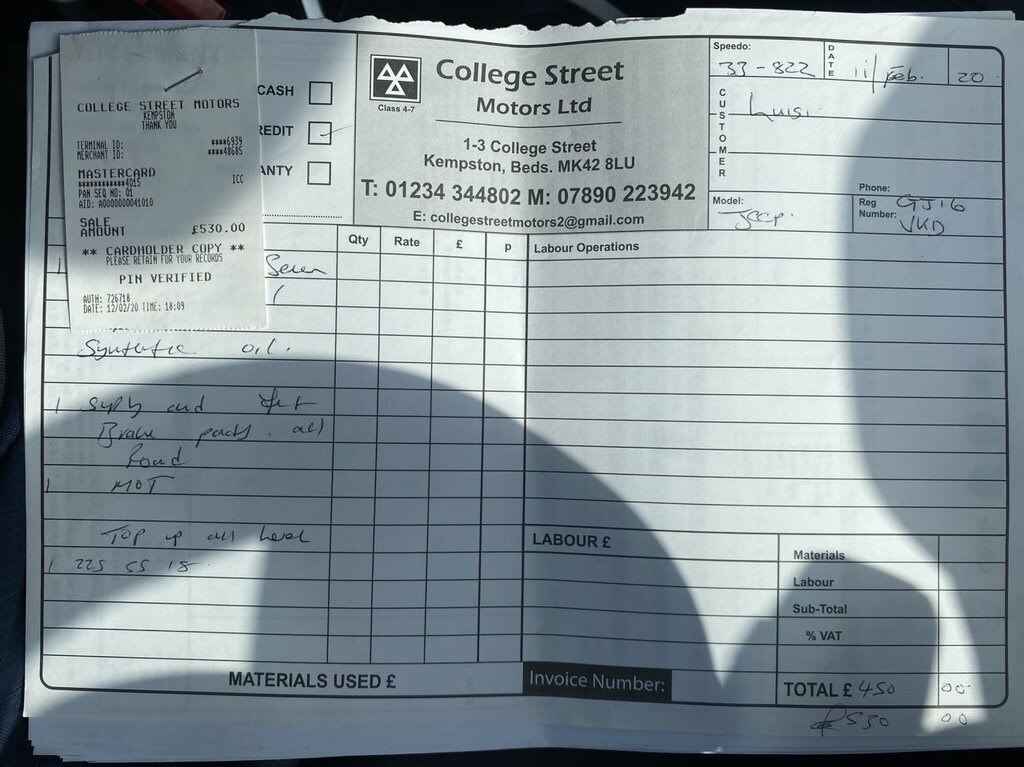 COLLEGE STREET MOTORS
KEMPSTON
THANK YOU
TERMINAL ID: ****6939
MERCHANT ID: ****48685
MASTERCARD
************4015 ICC
PAN SEQ NO: 01
AID: A0000000041010
SALE
AMOUNT £530.00
** CARDHOLDER COPY **
PLEASE RETAIN FOR YOUR RECORDS
PIN VERIFIED
AUTH: 726718
DATE: 12/02/20 TIME: 18:09
CASH
REDIT
ANTY
Class 4-7
College Street
Motors Ltd
1-3 College Street
Kempston, Beds. MK42 8LU
T: 01234 344802 M: 07890 223942
E: collegestreetmotors2@gmail.com
Speedo: 33-822
DATE 11/Feb. 20
CUSTOMER Luisi
Phone:
Model: Jeep.
Reg Number: GJ16 VKD
Qty Rate £ p Labour Operations
1
Synthetic oil.
1 Supply and
Brake pads. all
Roud
1 MOT
Top up all level
1 225 55 18
LABOUR £
Materials
Labour
Sub-Total
% VAT
MATERIALS USED £
Invoice Number:
TOTAL £ 450 00
£530 00